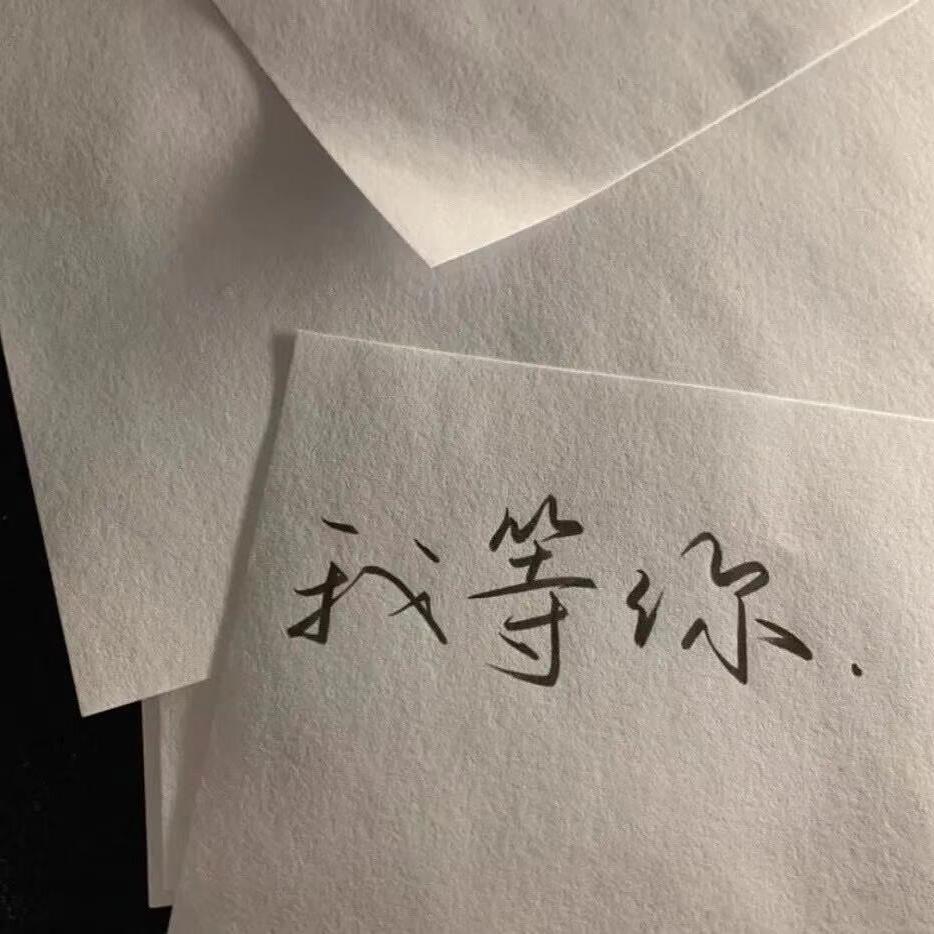 我等你.